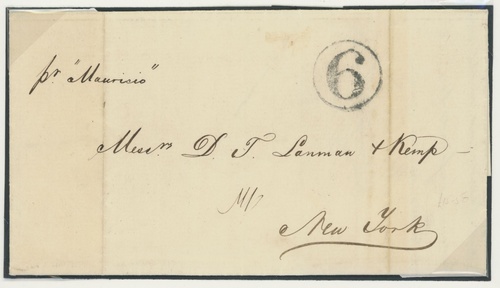 pr. "Maurisio"
6
Messrs D. T. Lanman & Kemp
New York